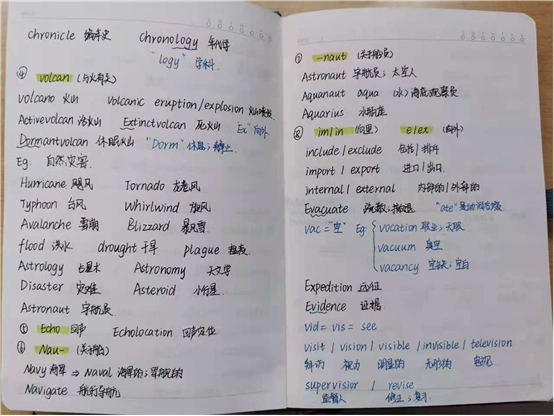 chronicle 编年史 chronology 年代学
"logy" 学科
④ volcan (与火有关)
volcano 火山 volcanic eruption/explosion 火山喷发
Activevolcan 活火山 Extinctvolcan 死火山 "Ex" 向外
Dormantvolcan 休眠火山 "Dorm" 休眠;静止
Eg: 自然灾害
Hurricane 飓风 Tornado 龙卷风
Typhoon 台风 Whirlwind 旋风
Avalanche 雪崩 Blizzard 暴风雪
flood 洪水 drought 干旱 plague 瘟疫
Astrology 占星术 Astronomy 天文学
Disaster 灾难 Asteroid 小行星
Astronaut 宇航员
⑤ Echo 回声 Echolocation 回声定位
⑥ Nau- (关于船)
Navy 海军 ⇒ Naval 海军的;军舰的
Navigate 航行;导航
⑦ -naut (关于船员)
Astronaut 宇航员;太空人
Aquanaut aqua (水) 海底观察员
Aquarius 水瓶座
⑧ im/in (向里) e/ex (向外)
include / exclude 包括/排斥
import / export 进口/出口
internal / external 内部的/外部的
Evacuate 疏散;撤退 "ate"
vac = "空" Eg: vocation 职业;天职
vacuum 真空
vacancy 空缺;空白
Expedition 远征
Evidence 证据
vid = vis = see
visit / vision / visible / invisible / television
视力 可见的 电视
supervisior / revise
监督人 修正;复习